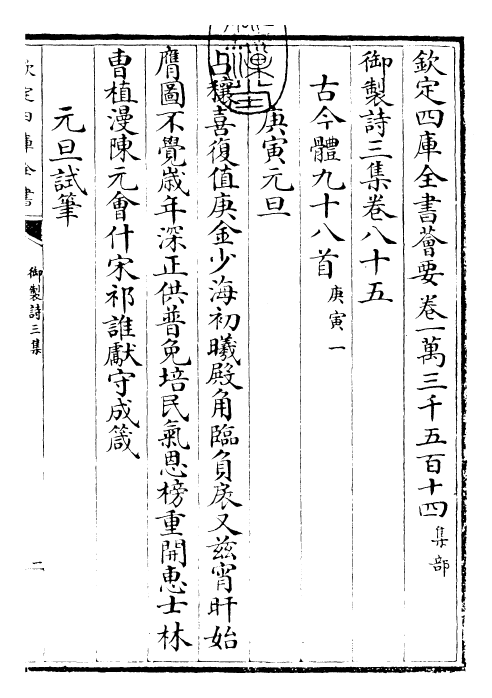 欽定四庫全書薈要卷一萬三千五百十四 集部
御製詩三集卷八十五
古今體九十八首 庚寅一
庚寅元旦
占穰喜復值庚金少海初曦殿角臨負扆又兹宵旰始
膺圖不覺嵗年深正供普免培民氣恩榜重開惠士林
曹植漫陳元會什宋祁誰獻守成箴
元旦試筆
欽定四庫全書
御製詩三集
二